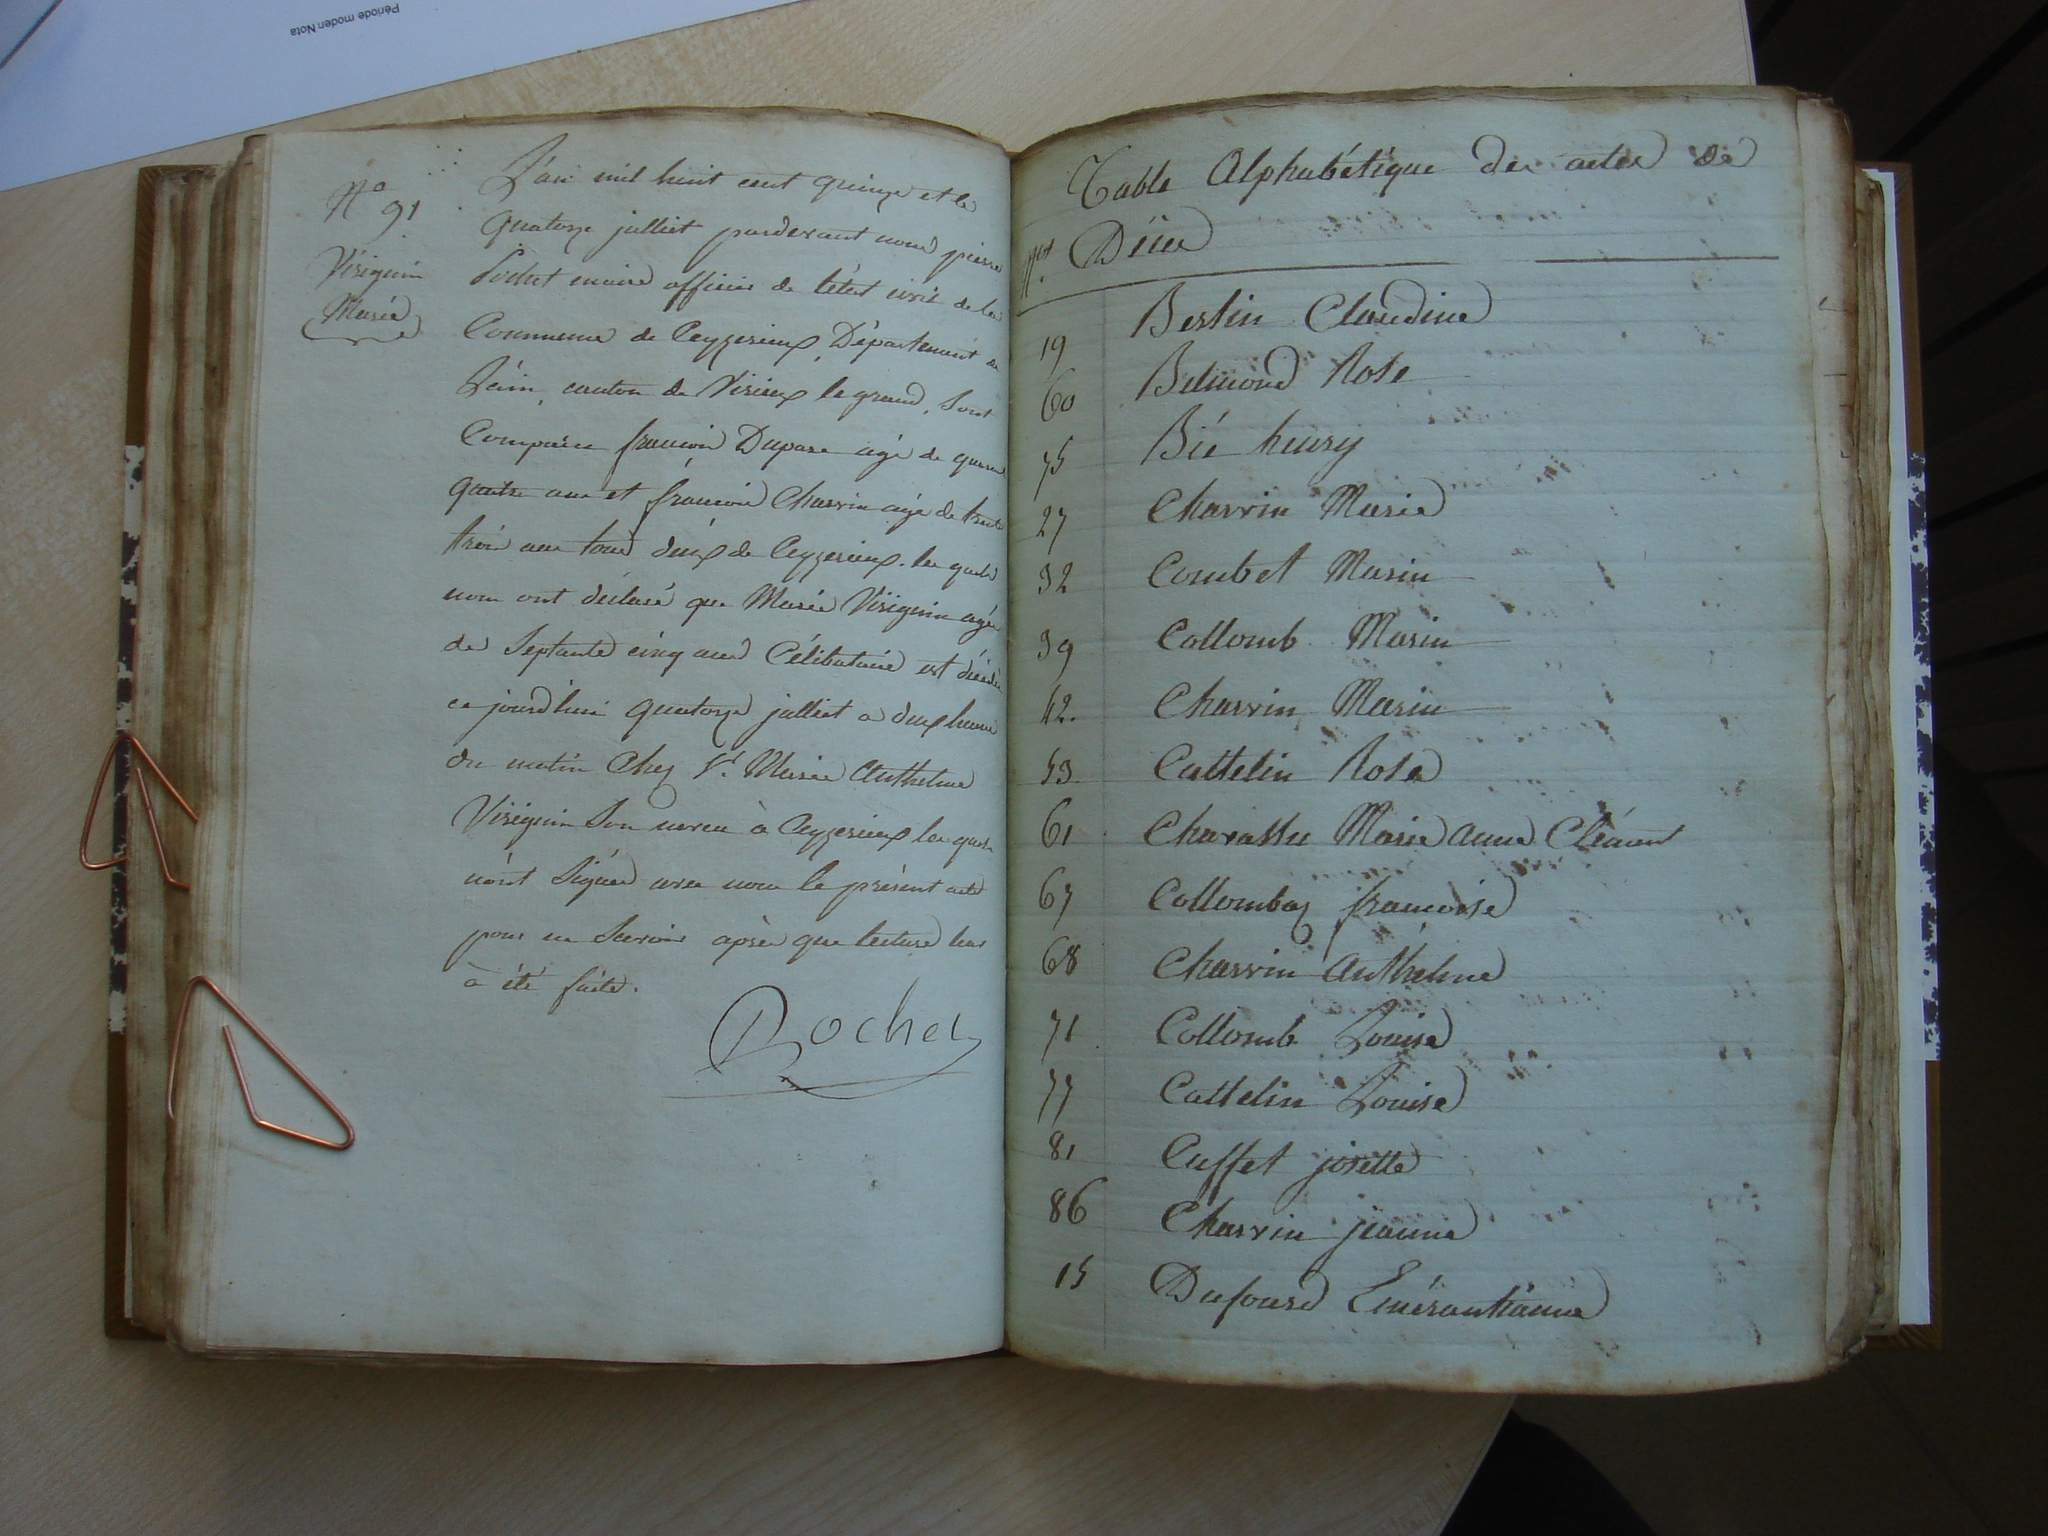 Période moden Nota
N° 91
Viriguin
Marie
L'an mil huit cent quinze et le
quatorze julliet pardevant nous pierre
Rochet maire officier de l'état civil de la
Commune de Ceyzerieux, Département de
L'ain, canton de Virieux le grand, sont
Comparu francois Dupare agé de quarante
quatre ans et francois Charvin agé de trente
trois ans tous deux de Ceyzerieux. les quels
nous ont déclaré que Marie Viriguin agée
de Septante cinq ans Célibataire est décédée
ce jourd'hui quatorze julliet a deux heures
du matin Chez Sr. Marie Anthelme
Viriguin Son neveu à Ceyzerieux les quels
n'ont Signés avec nous le présent acte
pour ne Savoir après que lecture leur
à été faite.
Rochet
Table Alphabétique des actes de
Nos. Décés
19 Bertin Claudine
60 Belmond Rose
75 Bié henry
27 Charvin Marie
32 Combet Marin
39 Collomb Marin
42. Charvin Marin
53 Cattelin Rose
61 Charassu Marie anne Cléament
67 Collomboz francoise
68 Charvin Anthelme
71 Collomb Louise
77 Cattelin Louise
81 Cuffet josette
86 Charvin jeanne
15 Dufourd Emérantianne